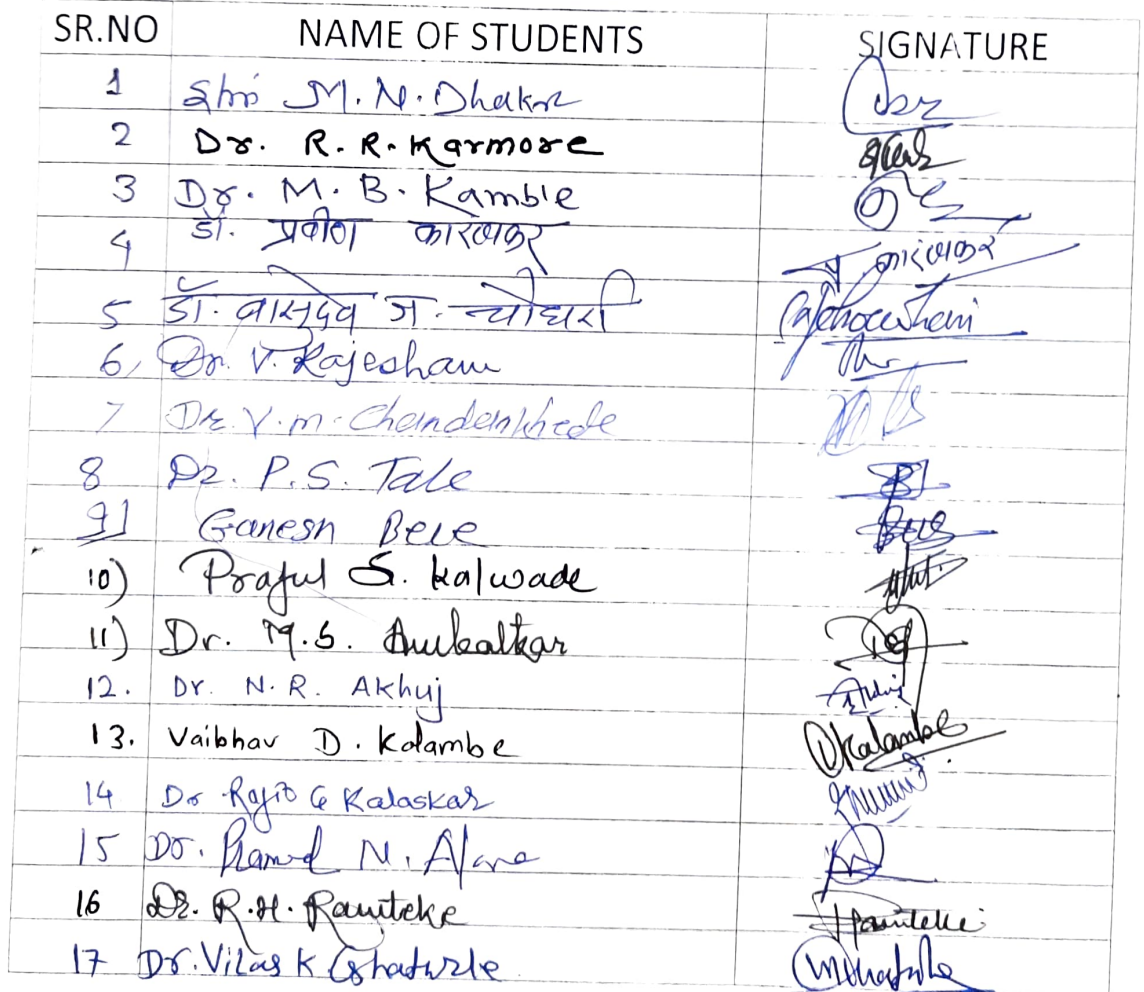 SR.NO NAME OF STUDENTS SIGNATURE
1 Shri M. N. Dhakre
2 Dr. R. R. Karmore
3 Dr. M. B. Kamble
4 डॉ. प्रवीण कारंजकर कारंजकर
5 डॉ. वासुदेव ज. चौधरी
6, Dr. V. Rajesham
7 Dr. V. M. Chandankhede
8 Dr. P. S. Tale
9] Ganesh Bele
10) Praful S. Kalwade
11) Dr. M. S. Ambatkar
12. Dr. N. R. Akhuj
13. Vaibhav D. Kalambe Kalambe
14 Dr Rajiv G Kalaskar
15 Dr. Pramod N.
16 Dr. R. H. Ramteke Ramteke
17 Dr. Vilas K Ghaturle